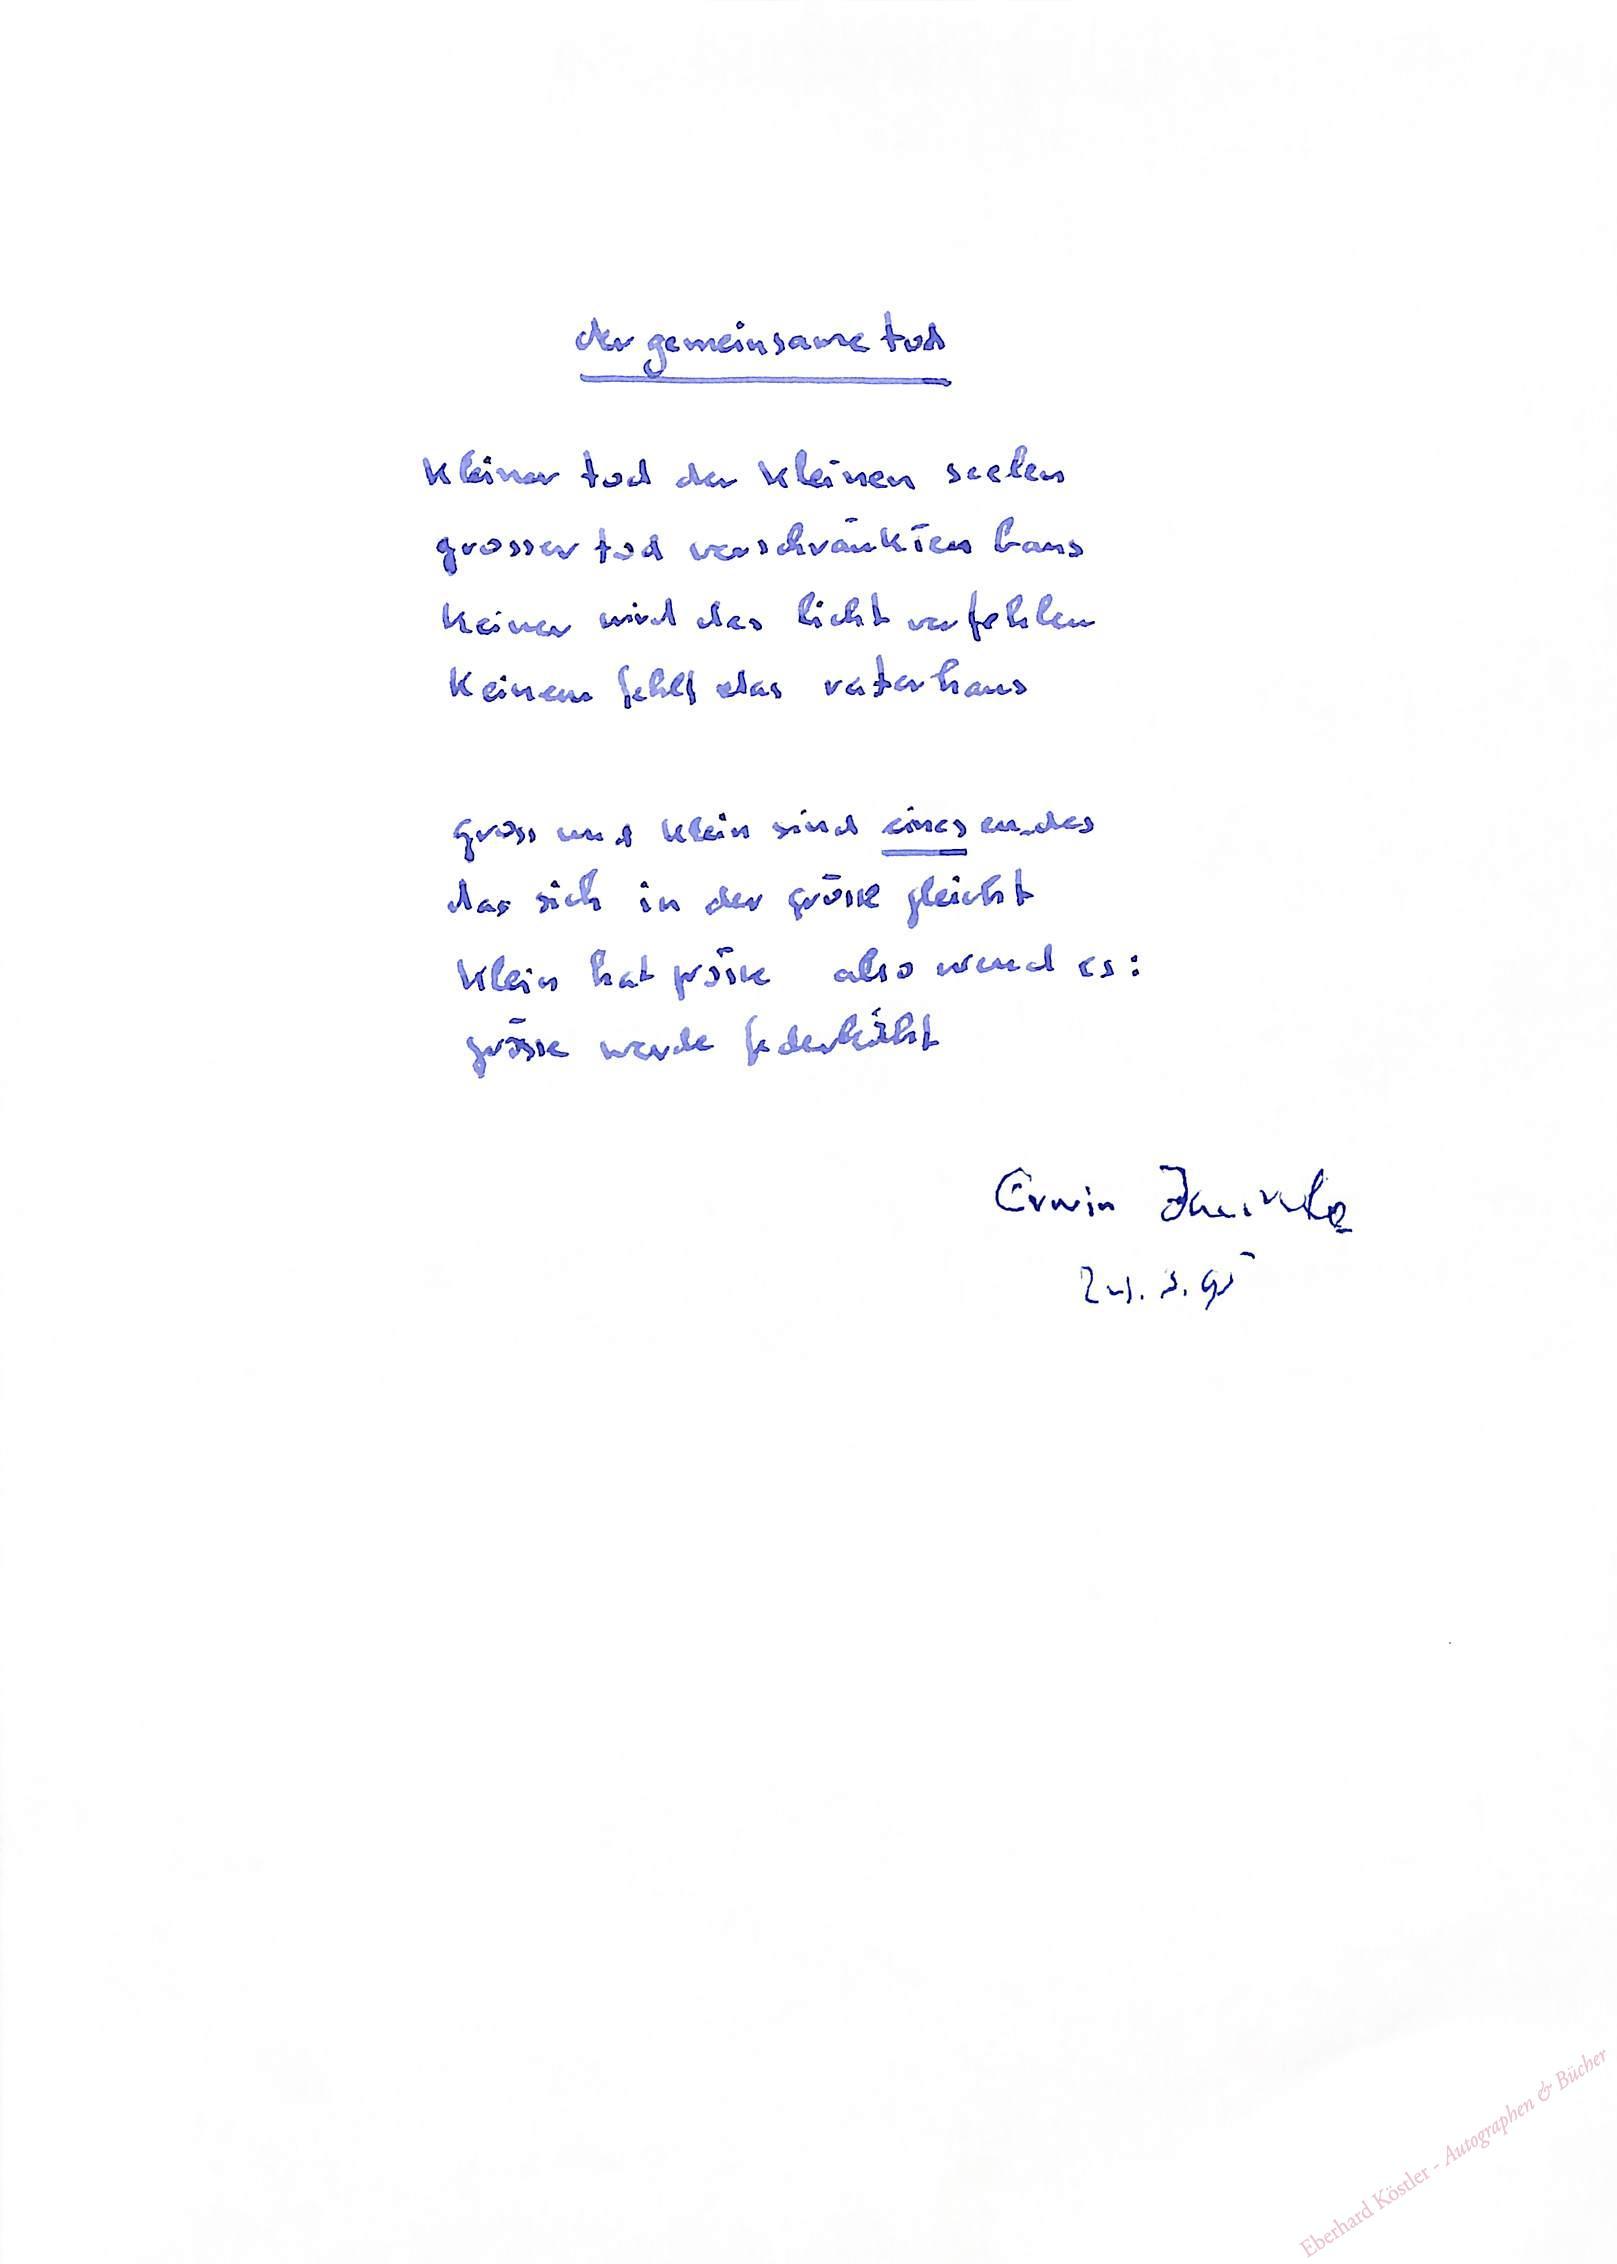 der gemeinsame tod
kleiner tod der kleinen seelen
grosser tod verschränkten baus
keiner wird das licht verfehlen
keinem fehlt das vaterhaus
gross und klein sind eines endes
das sich in der grösse gleicht
klein hat grösse also wend es:
grösse werde federleicht
Erwin
Eberhard Köstler - Autographen & Bücher